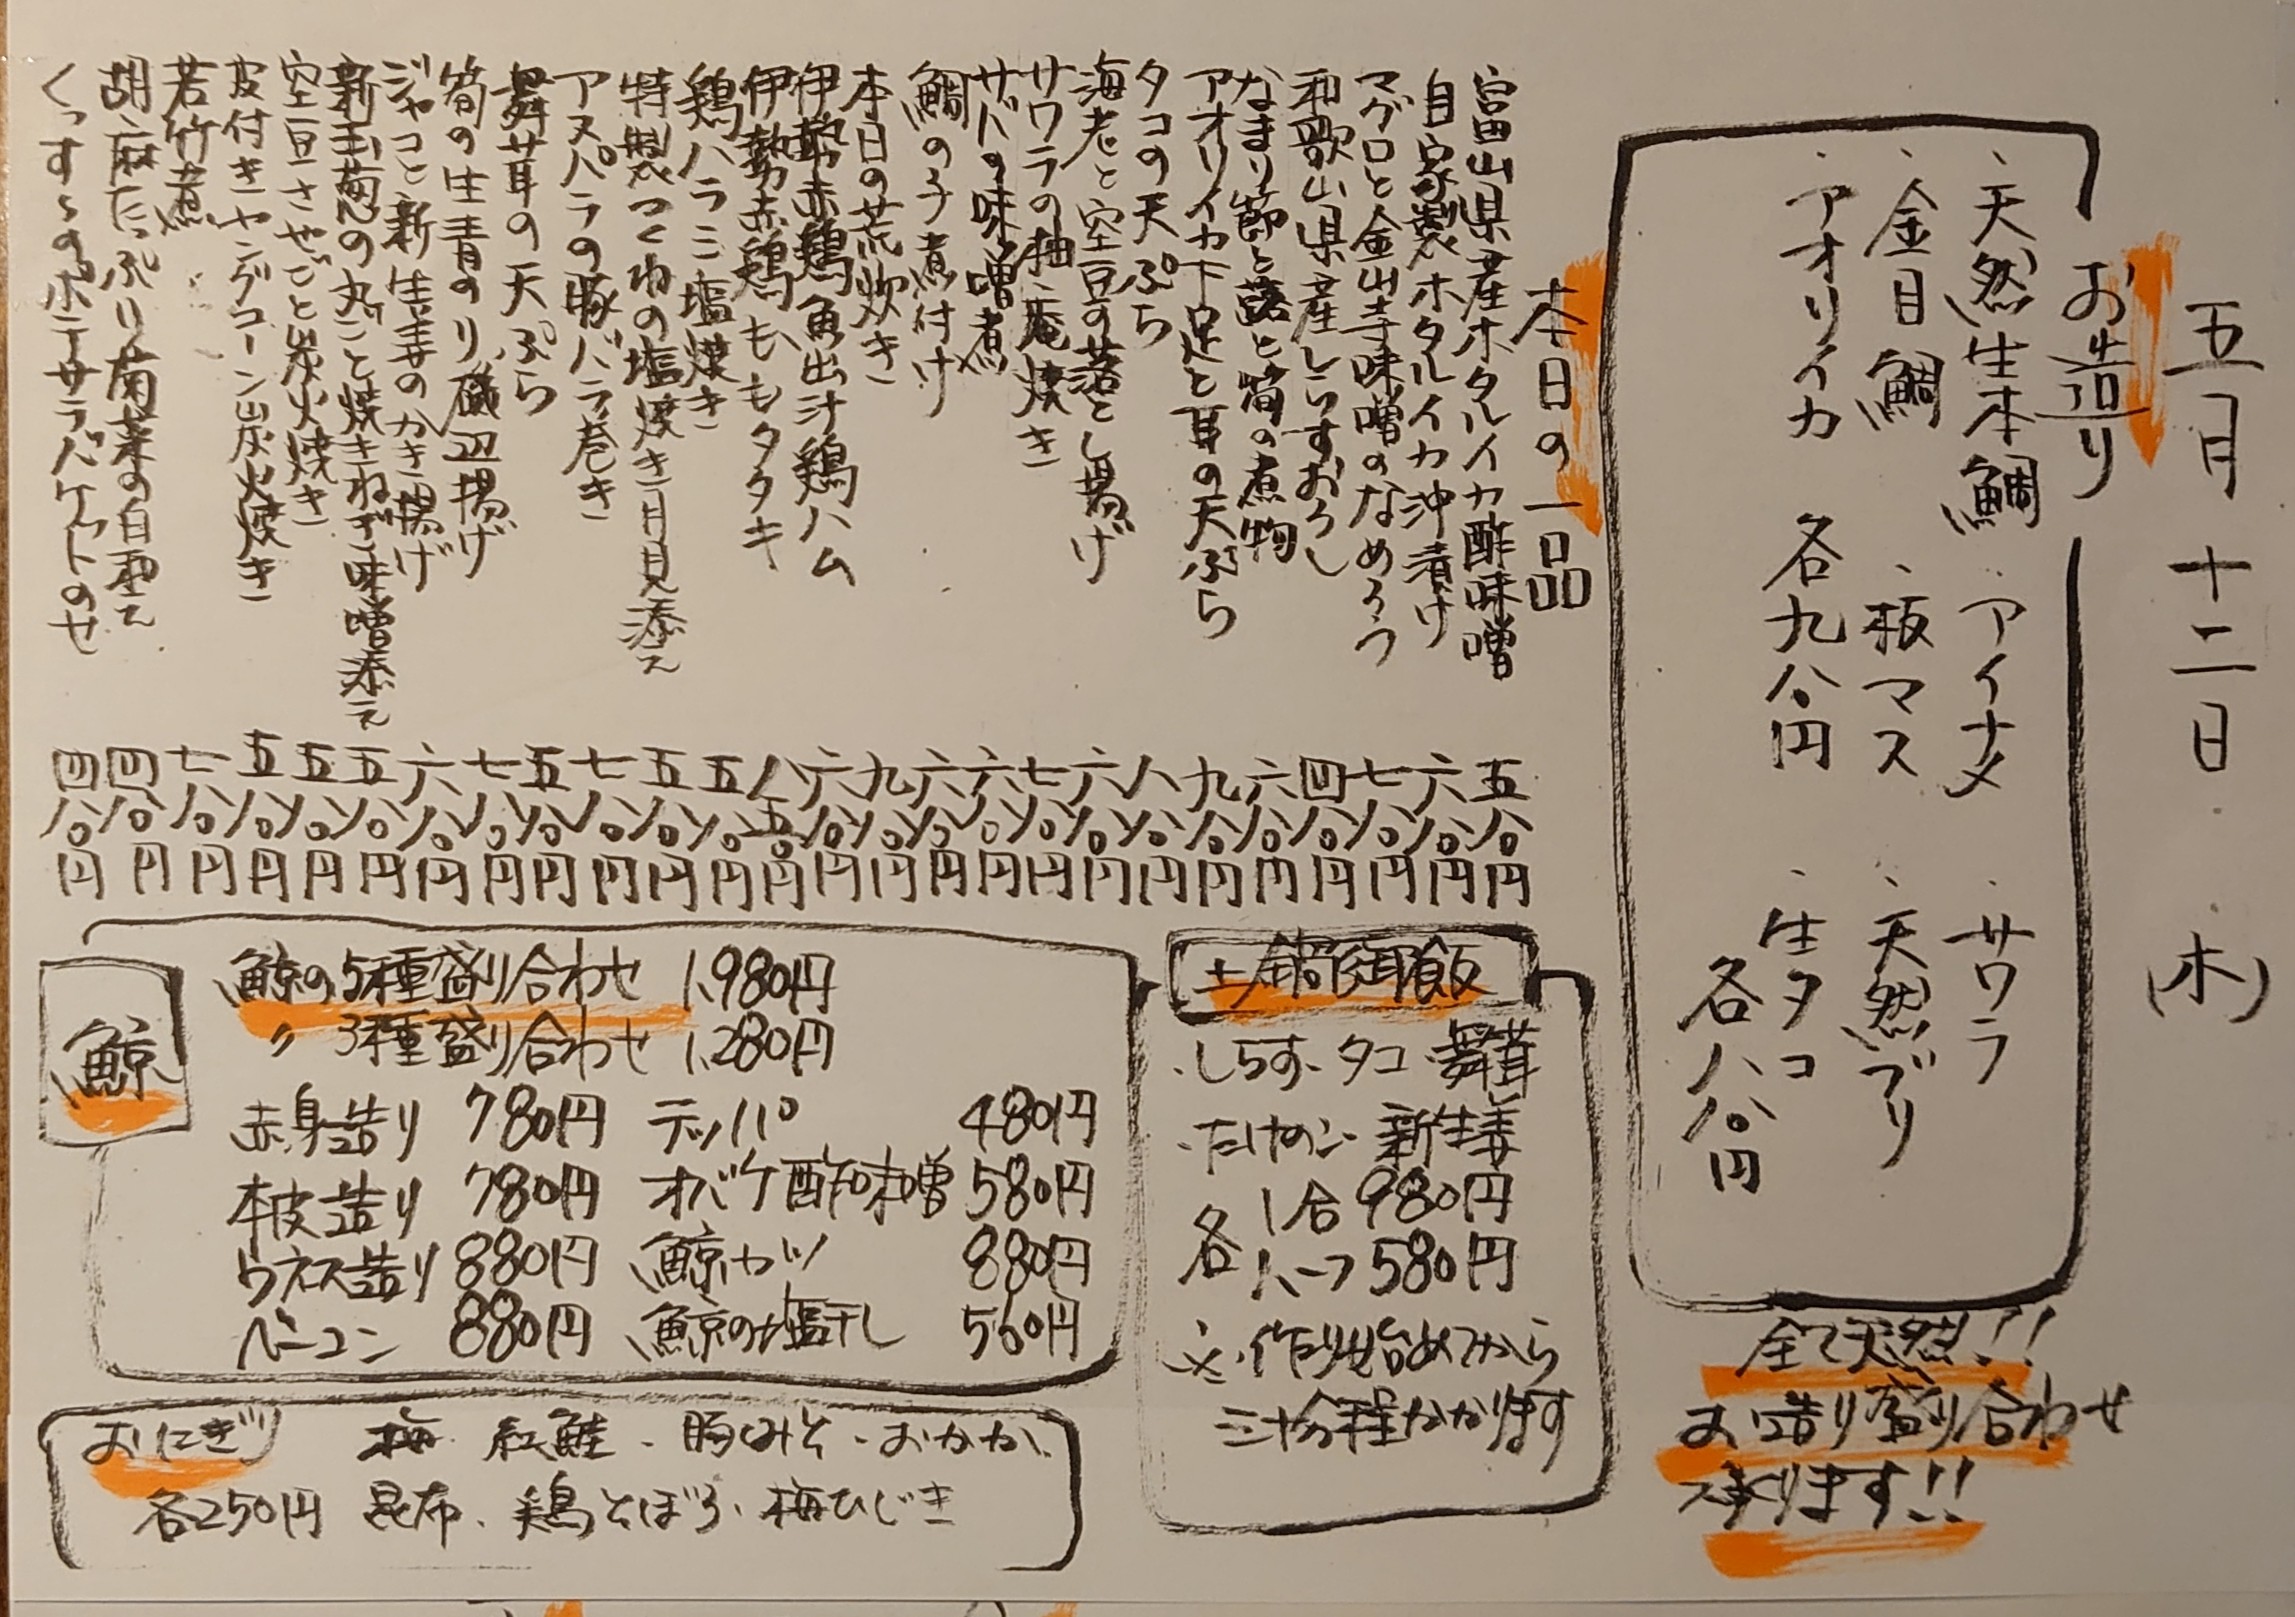 五月十二日(木)
お造り
・天然生本鯛 ・アイナメ ・サワラ
・金目鯛 ・板マス ・天然ブリ
・アオリイカ ・生タコ
各九八〇円 各八八〇円
全て天然!!
お造り盛り合わせ
承ります!!
本日の一品
富山県産ホタルイカ酢味噌 五八〇円
自家製ホタルイカ沖漬け 六八〇円
マグロと金山寺味噌のなめろう 七八〇円
和歌山県産しらすおろし 四八〇円
なまり節と蕗と筍の煮物 六八〇円
アオリイカ下足と耳の天ぷら 九八〇円
タコの天ぷら 八八〇円
海老と空豆の落とし揚げ 六八〇円
サワラの柚庵焼き 七八〇円
サバの味噌煮 六八〇円
鯛の子煮付け 六八〇円
本日の荒炊き 九八〇円
伊勢赤鶏魚出汁鶏ハム 六八〇円
伊勢赤鶏もものタタキ 八五〇円
鶏ハラミ塩焼き 五八〇円
特製つくねの塩焼き月見添え 五八〇円
アスパラの豚バラ巻き 七八〇円
舞茸の天ぷら 五八〇円
筍の生青のり磯辺揚げ 七八〇円
ジャコと新生姜のかき揚げ 六八〇円
新玉葱の丸ごと焼きねぎ味噌添え 五八〇円
空豆さやごと炭火焼き 五八〇円
皮付きヤングコーン炭火焼き 五八〇円
若竹煮 七八〇円
胡麻たっぷり菊菜の白和え 四八〇円
くっすーのポテサラバケットのせ 四八〇円
土鍋御飯
・しらす・タコ・舞茸
・たけのこ・新生姜
各 1合 980円
各 ハーフ 580円
※作り始めてから
三十分程かかります
鯨
鯨の5種盛り合わせ 1,980円
〃 3種盛り合わせ 1,280円
赤身造り 780円 テッパ 480円
本皮造り 780円 オバケ酢味噌 580円
ウネス造り 880円 鯨カツ 880円
ベーコン 880円 鯨の塩干し 560円
おにぎり 梅・紅鮭・豚しみそ・おかか・
各250円 昆布・鶏そぼろ・梅ひじき